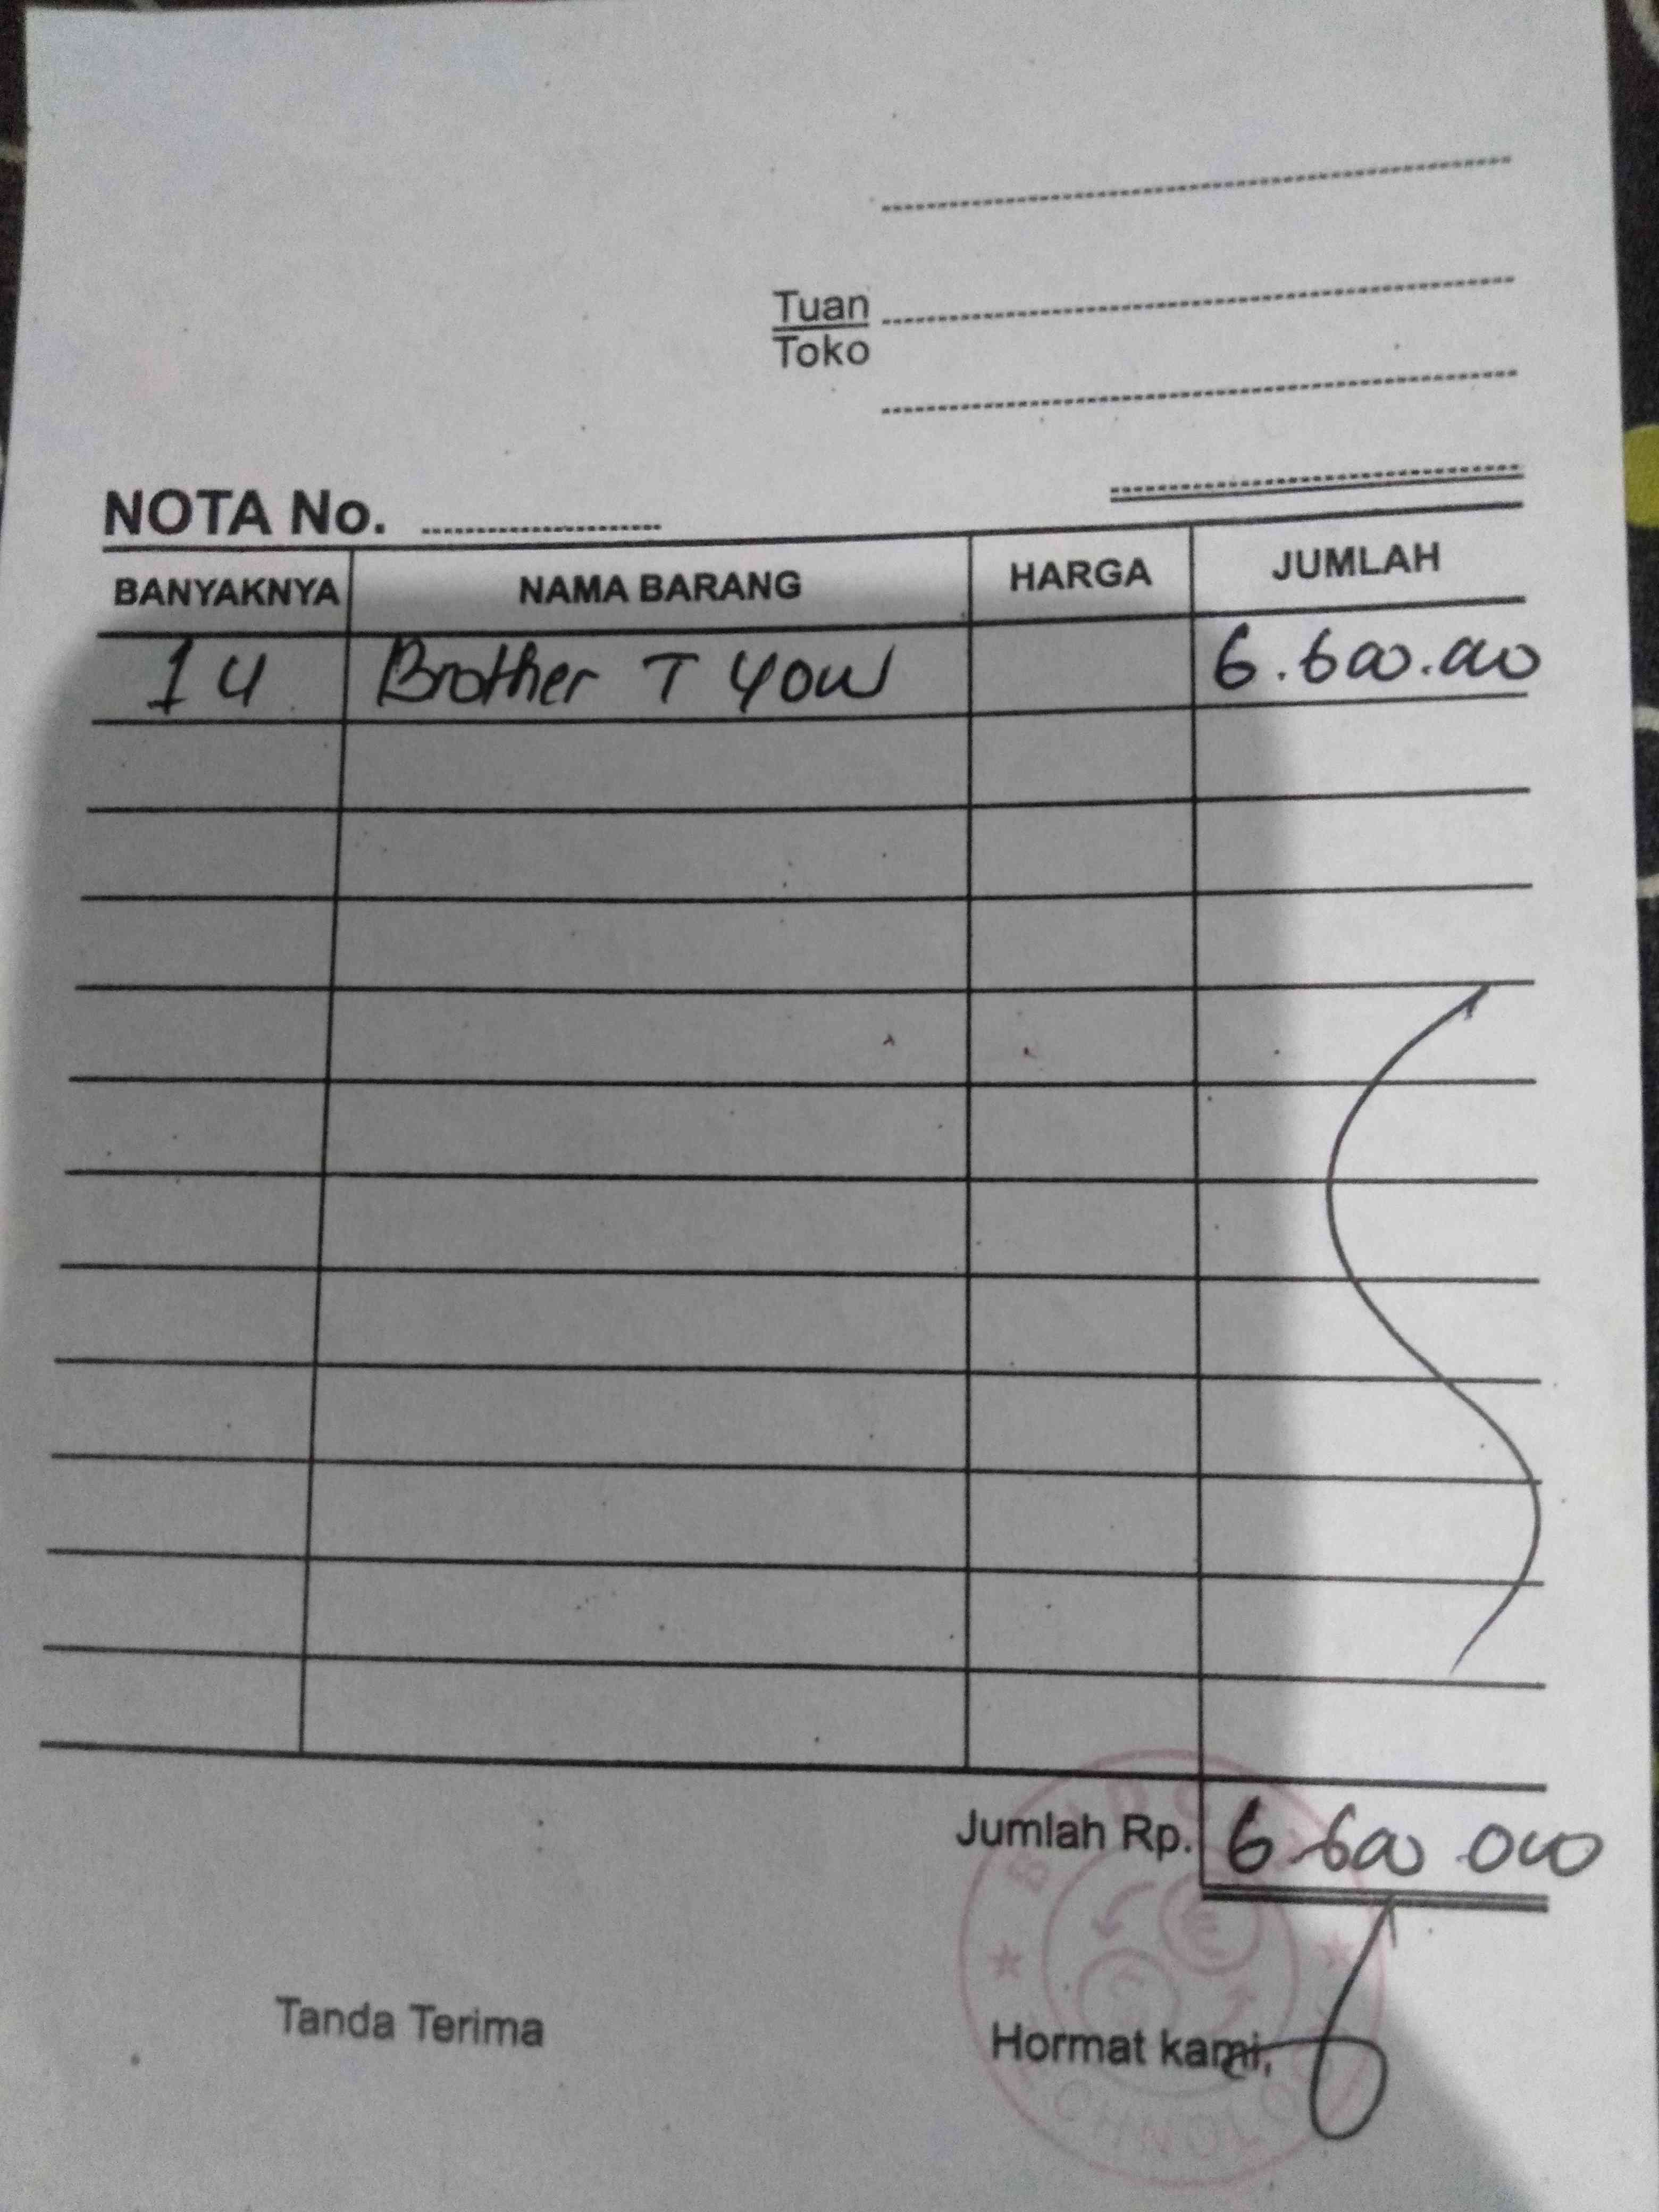 Tuan
Toko
NOTA No.
BANYAKNYA NAMA BARANG HARGA JUMLAH
1 U Brother T 400W 6.600.000
Jumlah Rp. 6.600.000
Tanda Terima Hormat kami,